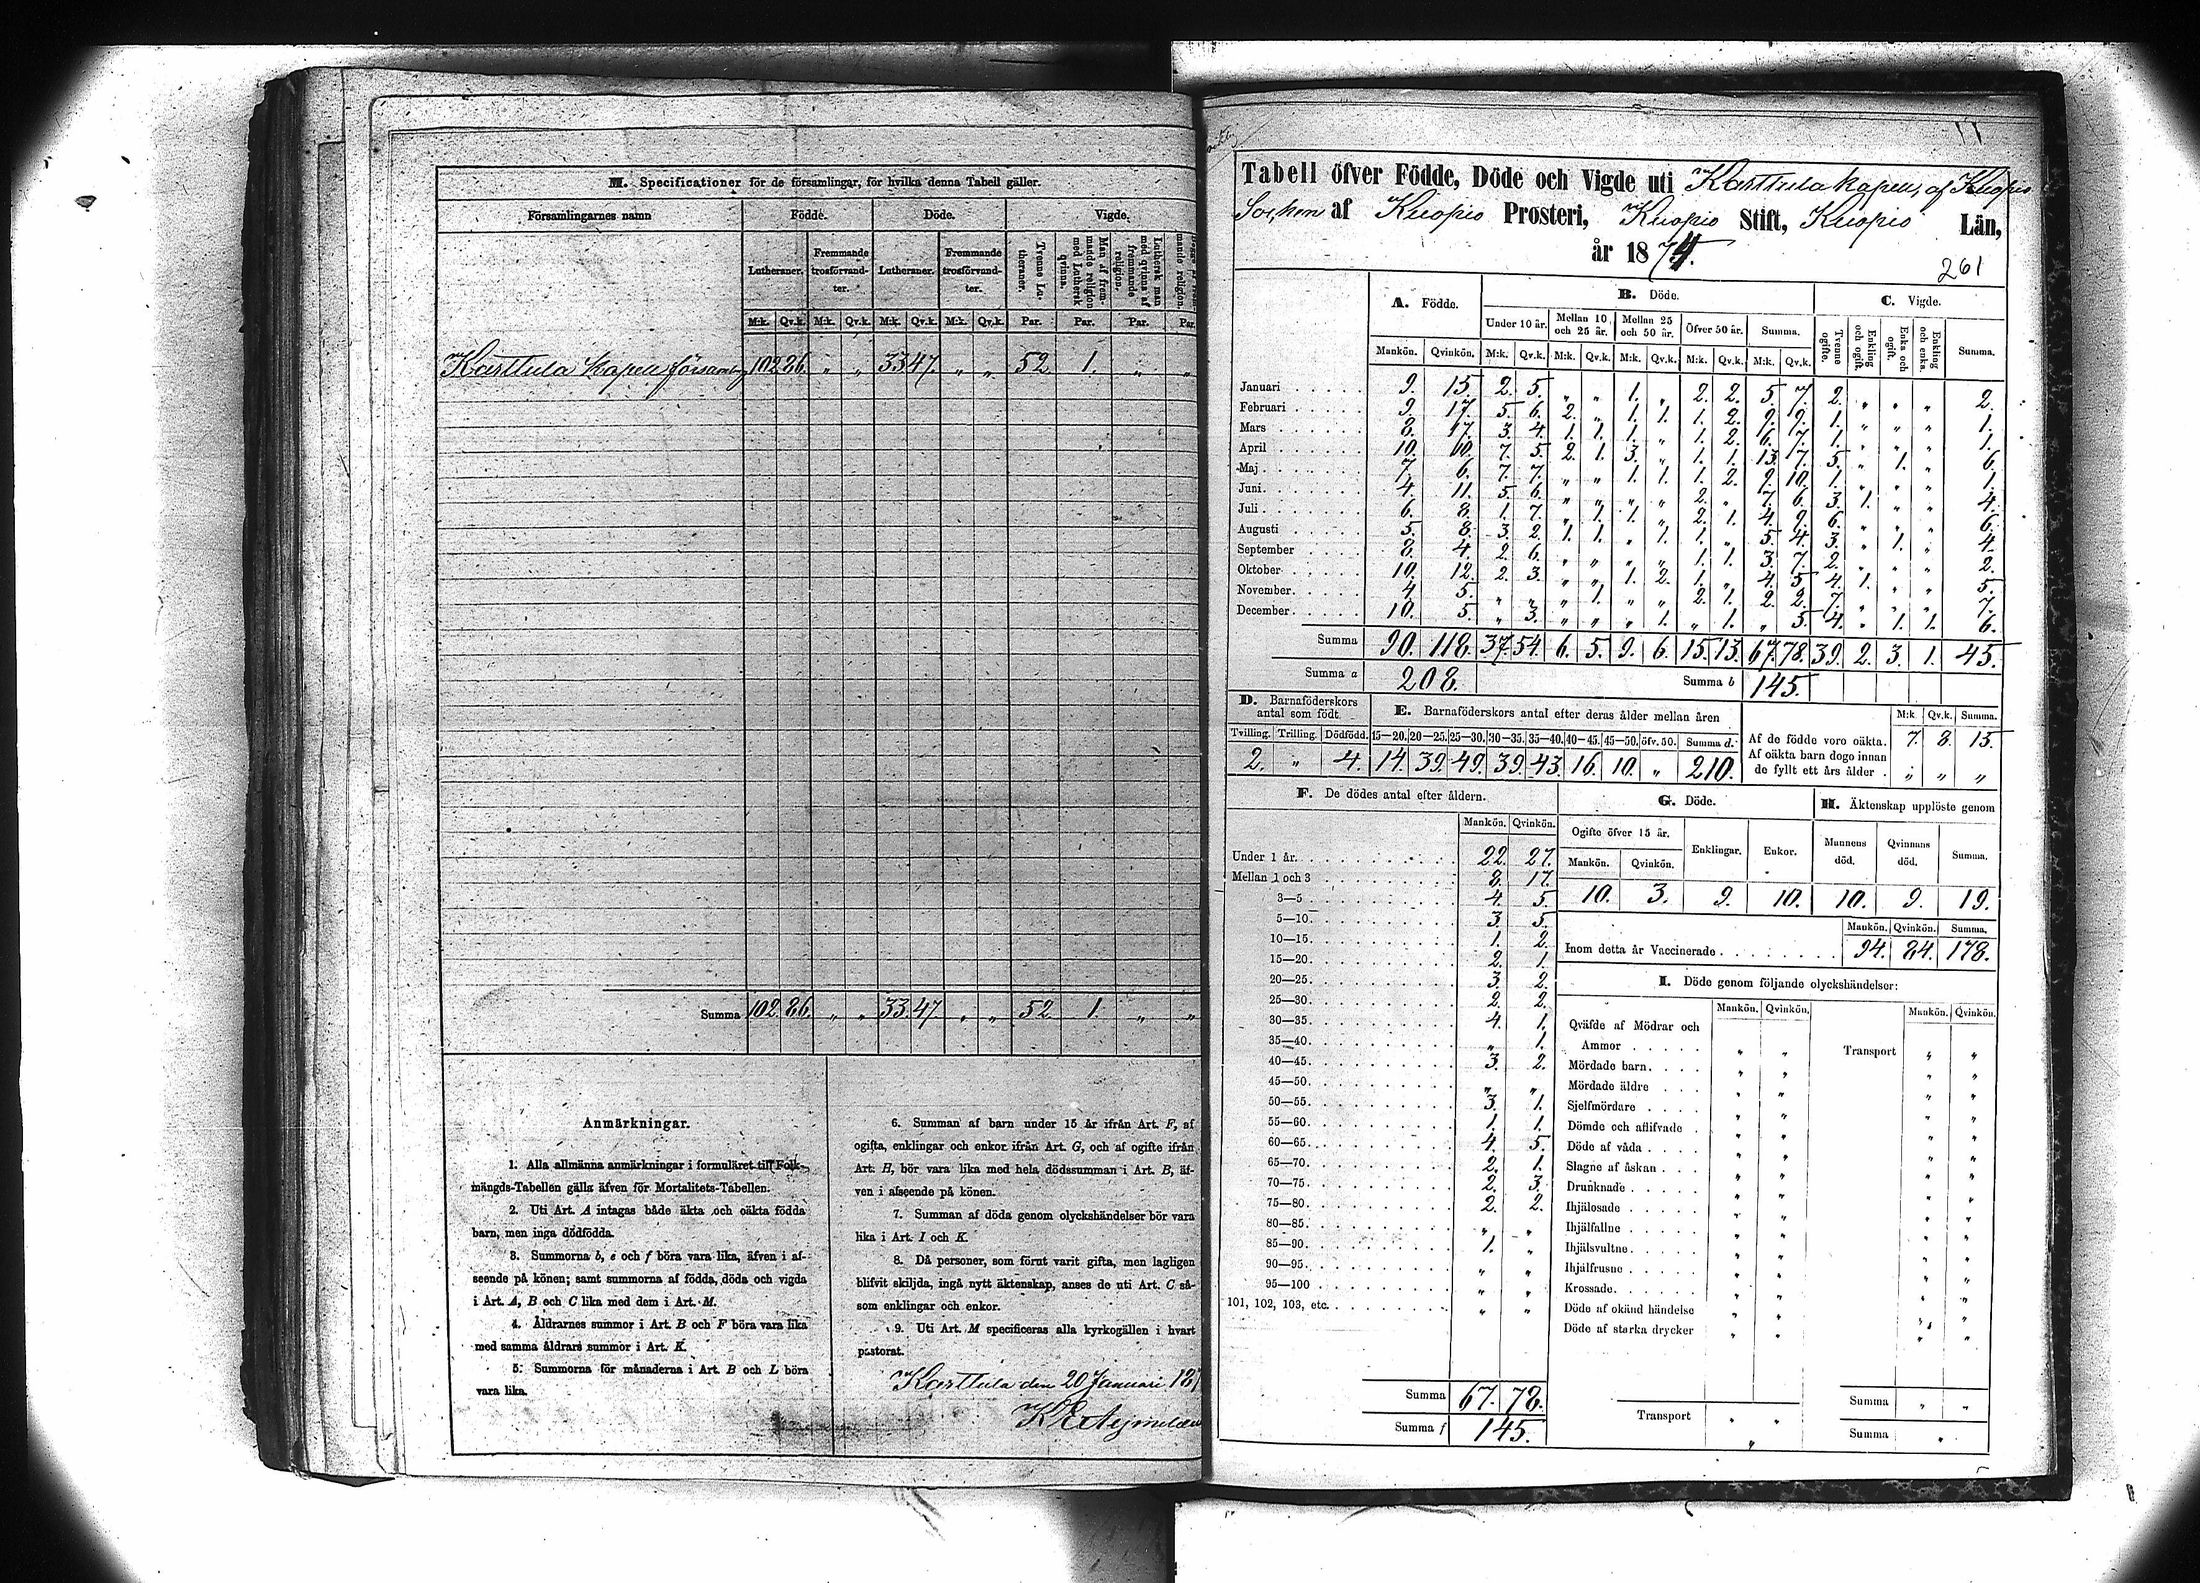 M. Specificationer för de församlingar, för hvilka denna Tabell gäller.
Församlingarnes namn Födde. Döde. Vigde.
Lutheraner. Fremmande trosförvandter. Lutheraner. Fremmande trosförvandter. Tvenne Lutheraner. Man af fremmande religion med Luthersk qvinna. Luthersk man med qvinna af fremmande religion.
M:k. Qv.k. M:k. Qv.k. M:k. Qv.k. M:k. Qv.k. Par. Par. Par. Par.
Karttula Kapellförsamling 102 86. „ „ 33 47. „ „ 52 1. „ „
Summa 102 86. „ „ 33 47 „ „ 52 1. „ „
Anmärkningar.
1. Alla allmänna anmärkningar i formuläret till Folk-
mängds-Tabellen gälla äfven för Mortalitets-Tabellen.
2. Uti Art. A intagas både äkta och oäkta födda
barn, men inga dödfödda.
3. Summorna b, e och f böra vara lika, äfven i af-
seende på könen; samt summorna af födda, döda och vigda
i Art. A, B och C lika med dem i Art. M.
4. Åldrarnes summor i Art. B och F böra vara lika
med samma åldrars summor i Art. K.
5. Summorna för månaderna i Art. B och L böra
vara lika.
6. Summan af barn under 15 år ifrån Art. F, af
ogifta, enklingar och enkor ifrån Art. G, och af ogifte ifrån
Art. H, bör vara lika med hela dödssumman i Art. B, äf-
ven i afseende på könen.
7. Summan af döda genom olyckshändelser bör vara
lika i Art. I och K.
8. Då personer, som förut varit gifta, men lagligen
blifvit skiljda, ingå nytt äktenskap, anses de uti Art. C så-
som enklingar och enkor.
9. Uti Art. M specificeras alla kyrkogällen i hvart
pastorat.
Karttula den 20 Januari 18
11
Tabell öfver Födde, Döde och Vigde uti Karttula kapell, af Kuopio
Socken af Kuopio Prosteri, Kuopio Stift, Kuopio Län,
år 1874.
261
A. Födde. B. Döde. C. Vigde.
Under 10 år. Mellan 10 och 25 år. Mellan 25 och 50 år. Öfver 50 år. Summa. Tvenne ogifte. Enkling och ogift. Enka och ogift. Enkling och enka. Summa.
Mankön. Qvinkön. M:k. Qv.k. M:k. Qv.k. M:k. Qv.k. M:k. Qv.k. M:k. Qv.k.
Januari 9. 15. 2. 5. „ „ 1. „ 2. 2. 5. 7. 2. „ „ „ 2.
Februari 9. 17. 5. 6. 2. „ 1. 1. 1. 2. 9. 9. 1. „ „ „ 1.
Mars 8. 17. 3. 4. 1. 1. 1. „ 1. 2. 6. 7. 1. „ „ „ 1.
April 10. 10. 7. 5. 2. 1. 3. „ 1. 1. 13. 7. 5. „ 1. „ 6.
Maj 7. 6. 7. 7. „ „ 1. 1. 1. 2. 9. 10. 1. „ „ „ 1.
Juni 4. 11. 5. 6. „ „ „ „ 2. „ 7. 6. 3. 1. „ „ 4.
Juli 6. 8. 1. 7. „ 1. 1. „ 2. 1. 4. 9. 6. „ „ „ 6.
Augusti 5. 8. 3. 2. 1. 1. „ 1. 1. „ 5. 4. 3. „ 1. „ 4.
September 8. 4. 2. 6. „ „ „ „ 1. 1. 3. 7. 2. „ „ „ 2.
Oktober 10. 12. 2. 3. „ „ 1. 2. 1. „ 4. 5 4. 1. „ „ 5.
November 4 5. „ „ „ 1. „ „ 2. 1. 2. 2. 7. „ „ „ 7.
December 10. 5. „ 3. „ „ „ 1. „ 1. „ 5. 4. „ 1. 1. 6.
Summa 90. 118. 37. 54. 6. 5. 9. 6. 15. 13. 67. 78. 39. 2. 3. 1. 45.
Summa a 208. Summa b 145.
D. Barnaföderskors antal som födt.
Tvilling. Trilling. Dödfödd.
2. „ 4.
E. Barnaföderskors antal efter deras ålder mellan åren
15—20. 20—25. 25—30. 30—35. 35—40. 40—45. 45—50. öfv. 50. Summa d.
14. 39. 49. 39. 43. 16. 10. „ 210.
M:k. Qv.k. Summa.
Af de födde voro oäkta. 7. 8. 15.
Af oäkta barn dogo innan
de fyllt ett års ålder „ „ „
F. De dödes antal efter åldern.
Mankön. Qvinkön.
Under 1 år. 22. 27.
Mellan 1 och 3 8. 17.
3—5 4. 5.
5—10. 3. 5.
10—15. 1. 2.
15—20. 2. 1.
20—25. 3. 2.
25—30. 2. 2.
30—35. 4. 1.
35—40. „ 1.
40—45. 3. 2.
45—50. „ „
50—55. 3. 1.
55—60. 1. 1.
60—65. 4. 5.
65—70. 2. 1.
70—75. 2. 3.
75—80. 2. 2.
80—85. „ „
85—90. 1. „
90—95. „ „
95—100 „ „
101, 102, 103, etc. „ „
Summa 67. 78.
Summa f 145.
G. Döde.
Ogifte öfver 15 år. Enklingar. Enkor.
Mankön. Qvinkön.
10. 3. 9. 10.
H. Äktenskap upplöste genom
Mannens död. Qvinnans död. Summa.
10. 9. 19.
Mankön. Qvinkön. Summa.
Inom detta år Vaccinerade 94. 84. 178.
I. Döde genom följande olyckshändelser:
Mankön. Qvinkön. Mankön. Qvinkön.
Qväfde af Mödrar och
Ammor „ „ Transport „ „
Mördade barn „ „ „ „
Mördade äldre „ „ „ „
Sjelfmördare „ „ „ „
Dömde och aflifvade „ „ „ „
Döde af våda „ „ „ „
Slagne af åskan „ „ „ „
Drunknade „ „ „ „
Ihjälosade „ „ „ „
Ihjälfallne „ „ „ „
Ihjälsvultne „ „ „ „
Ihjälfrusne „ „ „ „
Krossade „ „ „ „
Döde af okänd händelse „ „ „ „
Döde af starka drycker „ „ „ „
Summa „ „
Transport „ „
Summa „